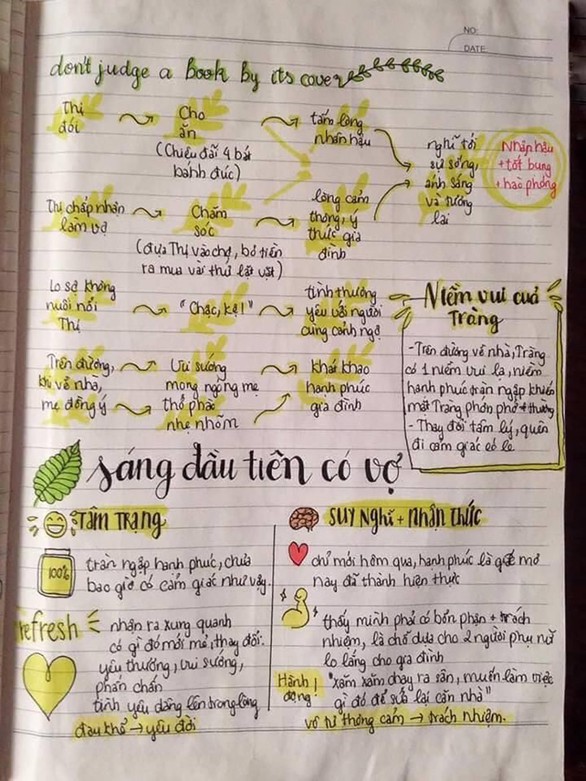 NO:
DATE:
don't judge a Book By its cover
Thị đói → Cho ăn → tấm lòng nhân hậu
(Chiêu đãi 4 bát bánh đúc)
nghĩ tới sự sống, ánh sáng và tương lai
Nhân hậu
+ tốt bụng
+ hào phóng
Thị chấp nhận làm vợ → Chăm sóc → lòng cảm thông, ý thức gia đình
(đưa Thị vào chợ, bỏ tiền
ra mua vài thứ lặt vặt)
Lo sợ không nuôi nổi Thị → "Chậc, kệ!" → tình thương yêu với người cùng cảnh ngộ
Trên đường, khi về nhà, mẹ đồng ý → Vui sướng mong ngóng mẹ thở phào nhẹ nhõm → khát khao hạnh phúc gia đình
Niềm vui của
Tràng
- Trên đường về nhà, Tràng
có 1 niềm vui lạ, niềm
hạnh phúc tràn ngập khiến
mặt Tràng phớn phở
- Thay đổi tâm lý, quên
đi cảm giác éo le
sáng đầu tiên có vợ
TÂM TRẠNG
100%
tràn ngập hạnh phúc, chưa
bao giờ có cảm giác như vậy.
refresh
nhận ra xung quanh
có gì đó mới mẻ, thay đổi.
yêu thương, vui sướng,
phấn chấn
tình yêu dâng lên trong lòng
đau khổ → yêu đời
SUY NGHĨ + NHẬN THỨC
chỉ mới hôm qua, hạnh phúc là giấc mơ
nay đã thành hiện thực
thấy mình phải có bổn phận + trách
nhiệm, là chỗ dựa cho 2 người phụ nữ
lo lắng cho gia đình
Hành động!
"xăm xăm chạy ra sân, muốn làm việc
gì đó để sửa lại căn nhà"
vô tư thông cảm → trách nhiệm.